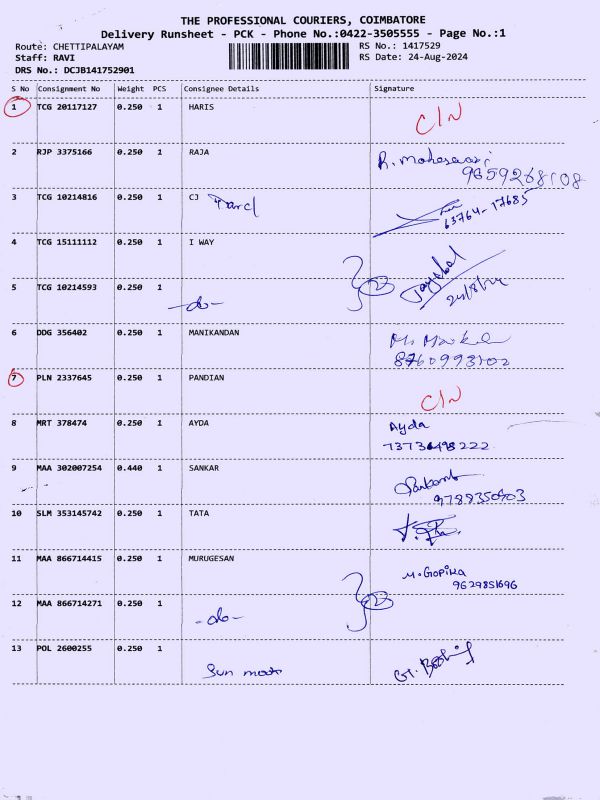 THE PROFESSIONAL COURIERS, COIMBATORE
Delivery Runsheet - PCK - Phone No.:0422-3505555 - Page No.:1
Route: CHETTIPALAYAM RS No.: 1417529
Staff: RAVI RS Date: 24-Aug-2024
DRS No.: DCJB141752901
S No Consignment No Weight PCS Consignee Details Signature
1 TCG 20117127 0.250 1 HARIS
C/N
2 RJP 3375166 0.250 1 RAJA
9659268108
3 TCG 10214816 0.250 1 CJ
63764-17685
4 TCG 15111112 0.250 1 I WAY
5 TCG 10214593 0.250 1
-do- 24/8/24
6 DDG 356402 0.250 1 MANIKANDAN
8760993102
7 PLN 2337645 0.250 1 PANDIAN
C/N
8 MRT 378474 0.250 1 AYDA Ayda
9 MAA 302007254 0.440 1 SANKAR
10 SLM 353145742 0.250 1 TATA
11 MAA 866714415 0.250 1 MURUGESAN
M.Gopika
9629851696
12 MAA 866714271 0.250 1
-do-
13 POL 2600255 0.250 1
Sun